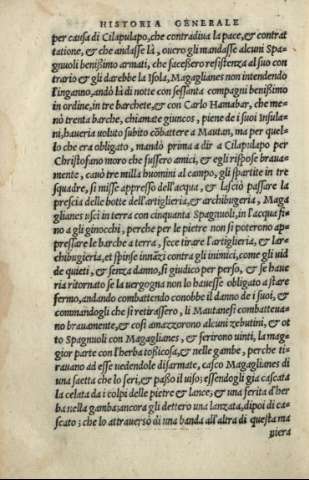 HISTORIA GENERALE
per causa di Cilapulapo, che contradiua la pace, & contrat
tatione, & che andasse là, ouero gli mandasse alcuni Spa
gnuoli benißimo armati, che faceßero resistenza al suo con
trario & gli darebbe la Isola, Magaglianes non intendendo
l'inganno, andò là di notte con sessanta compagni benißimo
in ordine, in tre barchete, & con Carlo Hamabar, che me-
nò trenta barche, chiamate giuncos, piene de i suoi Insula-
ni, haueria uoluto subito cõbattere a Mautan, ma per quel-
lo che era obligato, mandò prima a dir a Cilapulapo per
Christofano moro che fussero amici, & egli rispose braua-
mente, cauò tre milla huomini al campo, gli spartite in tre
squadre, si misse appresso dell'acqua, & lasciò passare la
prescia delle botte dell'artiglieria, & archibugeria, Maga
glianes uscì in terra con cinquanta Spagnuoli, in l'acqua fi-
no a gli ginocchi, perche per le pietre non si poterono ap-
pressare le barche a terra, fece tirare l'artiglieria, & l'ar-
chibugieria, et spinse innãzi contra gli inimici, come gli uid
de quieti, & senza danno, si giudico per perso, & se haue
ria ritornato se la uergogna non lo hauesse obligato a stare
fermo, andando combattendo conobbe il danno de i suoi, &
commandogli che si retirassero, li Mautanesi combatteua-
no brauamente, & cosi amazzorono alcuni zebutini, & ot
to Spagnuoli con Magaglianes, & ferirono uinti, la mag-
gior parte con l'herba tossicosa, & nelle gambe, perche ti-
rauano ad esse uedendole disarmate, cascò Magaglianes di
una saetta che lo ferì, & paßo il uiso; essendogli gia cascata
la celata da i colpi delle pietre & lance; & una ferita d'her
ba nella gamba; ancora gli dettero una lanzata, dipoi di ca-
scato; che lo attrauersò di una banda all'altra di questa ma
niera